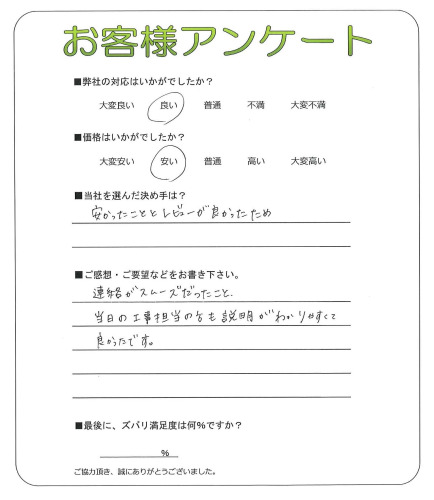 お客様アンケート
■弊社の対応はいかがでしたか？
大変良い 良い 普通 不満 大変不満
■価格はいかがでしたか？
大変安い 安い 普通 高い 大変高い
■当社を選んだ決め手は？
安かったこととレビューが良かったため
■ご感想・ご要望などをお書き下さい。
連絡がスムーズだったこと.
当日の工事担当の方も説明がわかりやすくて
良かったです。
■最後に、ズバリ満足度は何%ですか？
%
ご協力頂き、誠にありがとうございました。